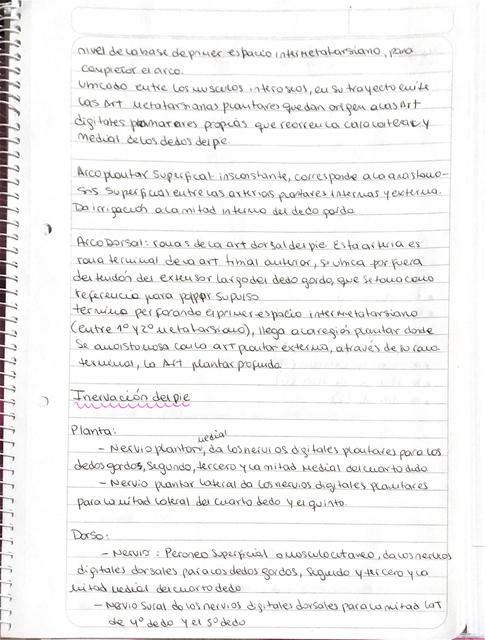 nivel de la base de primer espacio intermetatarsiano, para
completar el arco.
Ubicado entre los musculos interoseos, en su trayecto emite
las Art Metatarsianas plantares que dan origen a las Art
digitales plantares propias que recorren la cara lateral y
medial de los dedos del pie.
Arco plantar Superficial: insconstante, corresponde a la anastomo-
sis Superficial entre las arterias plantares internas y externa.
Da irrigación a la mitad interna del dedo gordo
Arco Dorsal: ramas de la art dorsal del pie Esta arteria es
rama terminal de la art tibial anterior, se ubica por fuera
del tendón del extensor largo del dedo gordo, que se toma como
referencia para palpar su pulso
termina perforando el primer espacio intermetatarsiano
(entre 1º y 2º Metatarsiano), llega a la región plantar donde
Se anastomosa con la art plantar externa, através de su rama
terminal, la Art plantar profunda.
Inervación del pie
Planta:
- Nervio plantar medial, da los nervios digitales plantares para los
dedos gordos, Segundo, tercero y la mitad Medial del cuarto dedo
- Nervio plantar lateral da los nervios digitales plantares
para la mitad lateral del cuarto dedo y el quinto.
Dorso:
- Nervio: Peroneo Superficial o musculocutaneo, da los nervios
digitales dorsales para los dedos gordos, Segundo y tercero y la
mitad medial del cuarto dedo
- Nervio Sural da los nervios digitales dorsales para la mitad lat
de 4º dedo y el 5º dedo